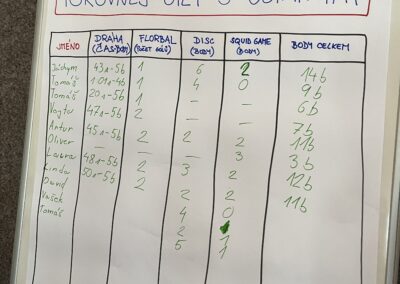 POROVNEJ SÍLY S OSTATNÍMI
JMÉNO DRAHA (ČAS-BODY) FLORBAL (POČET GÓLŮ) DISC (BODY) SQUID GAME (BODY) BODY CELKEM
Jáchym 43s-5b 1 6 2 14b
Tomáš 1:01s-4b 1 4 0 9b
Tomáš 20s-5b 1 — — 6b
Vojta 47s-5b 2 — — 7b
Artur 45s-5b 2 2 2 11b
Oliver — — — 3 3b
Laura 48s-5b 2 3 2 12b
Linda 50s-5b 2 2 2 11b
David 4 0
Vašek 2
Tomáš 5 1
1